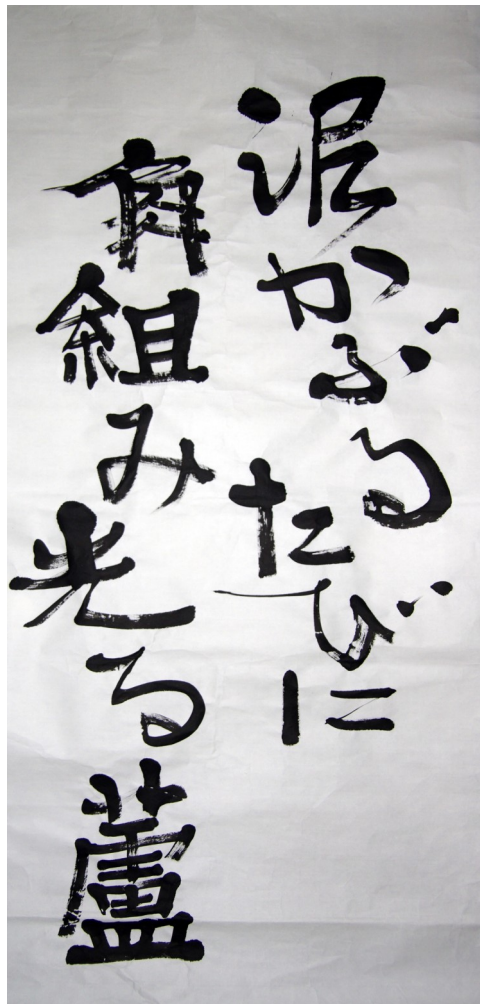 泥かぶるたびに
角組み光る蘆